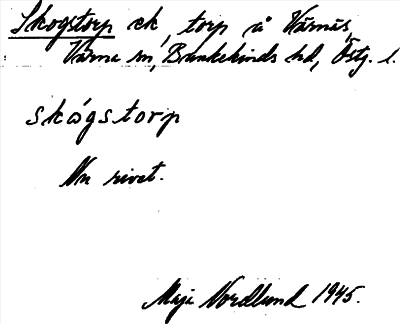 Skogstorp ck, torp å Värnäs,
Värna sn, Bankekinds hd, Östg. l.
skógstorp
Nu rivet.
Maja Nordlund 1945.